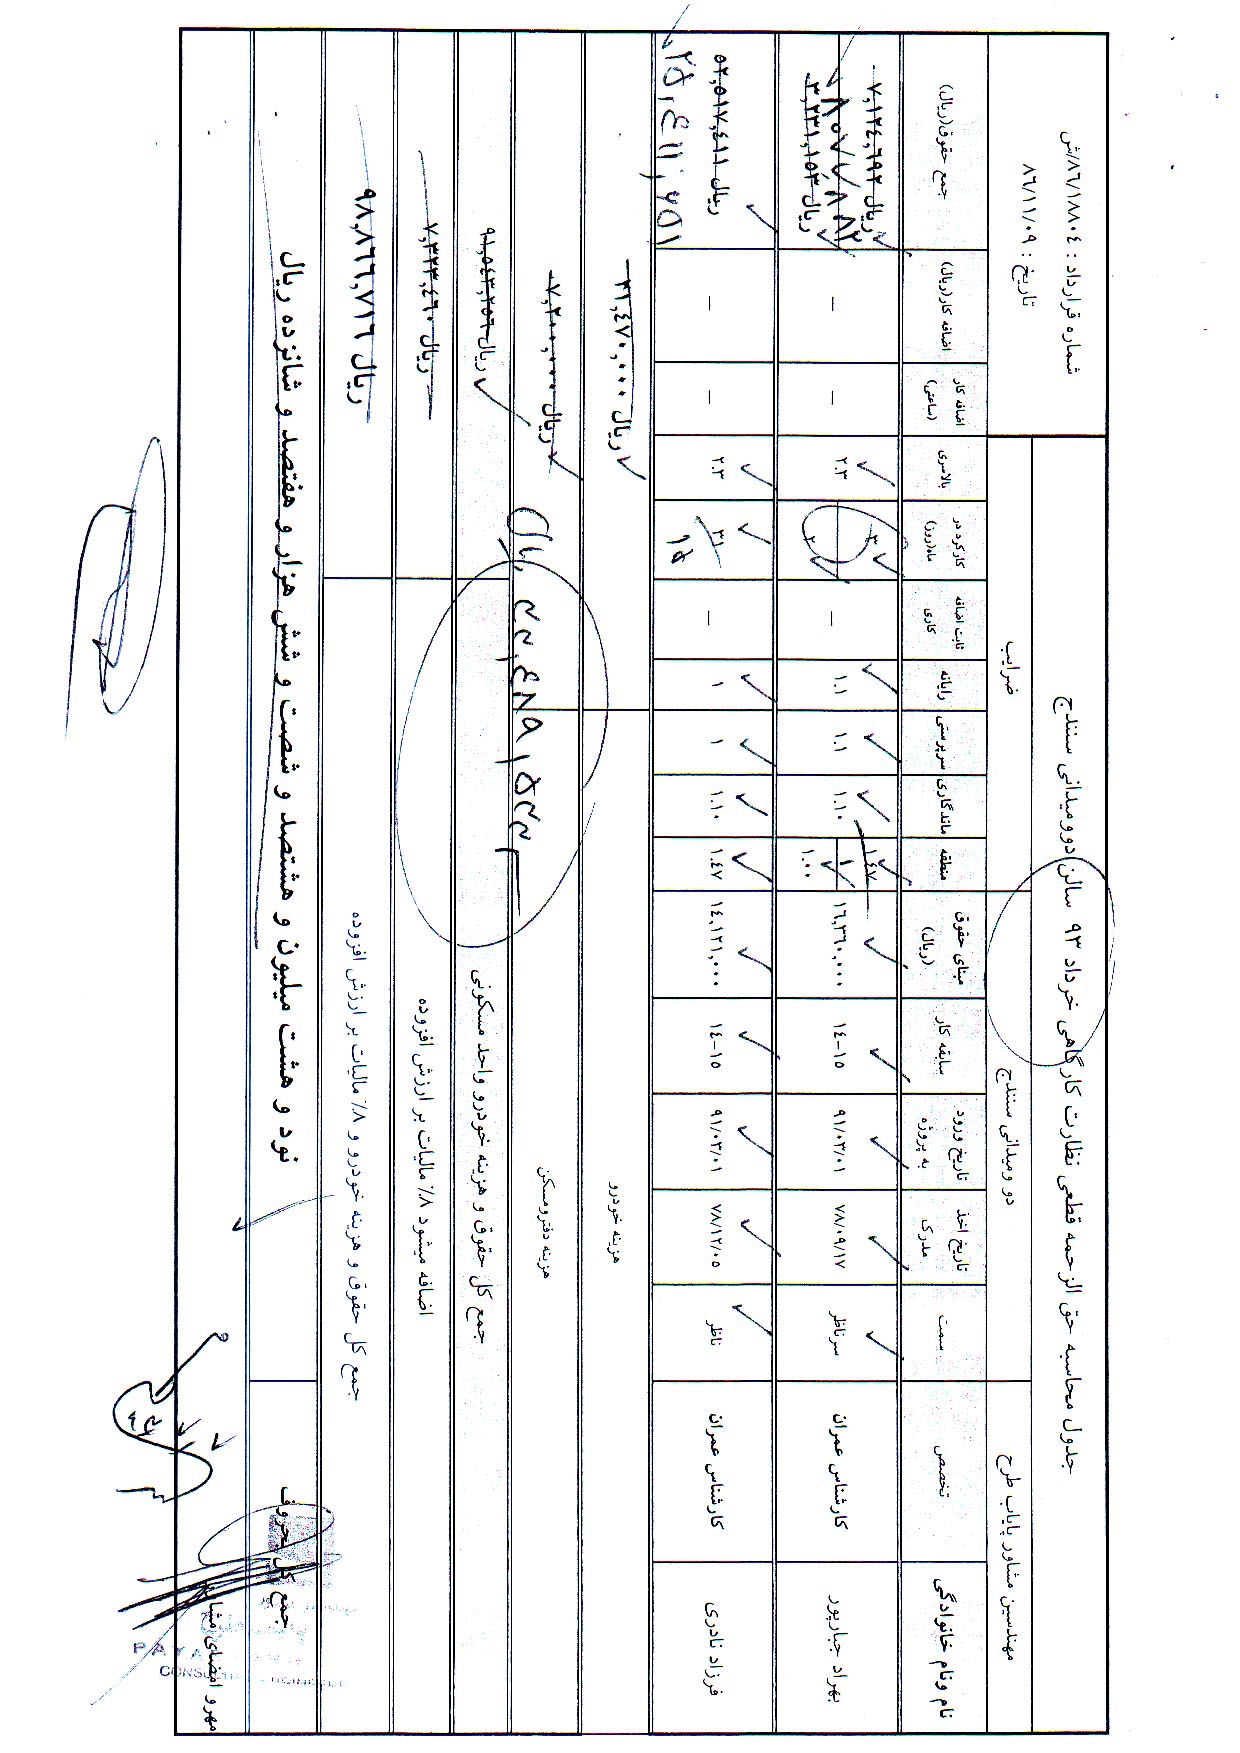 جدول محاسبه حق الزحمه قطعی نظارت کارگاهی خرداد ۹۳ سالن دوومیدانی سنندج
شماره قرارداد : ۸۶/۱۸۸۰٤/ش
تاریخ : ۸۶/۱۱/۰۹
مهندسین مشاور پایاب طرح
دو و میدانی سنندج
ضرایب
نام ونام خانوادگی تخصص سمت تاریخ اخذ مدرک تاریخ ورود به پروژه سابقه کار مبنای حقوق (ریال) منطقه ماندگاری سرپرستی رایانه ثابت اضافه کاری کارکرد در ماه(روز) بالاسری اضافه کار (ساعتی) اضافه کار(ریال) جمع حقوق(ریال)
بهراد جبارپور کارشناس عمران سرناظر ۷۸/۰۹/۱۷ ۹۱/۰۳/۰۱ ۱٤-۱۵ ۱۶,۳۶۰,۰۰۰ ۱.٤۷ ۱.۱۰ ۱.۱ ۱.۱ – ۳ ۲.۳ – – ۷,۱۲٤,۶۹۲ ریال
۱.۰۰ ۲ ۳,۲۳۱,۱۵۳ ریال
فرزاد نادری کارشناس عمران ناظر ۷۸/۱۲/۰۵ ۹۱/۰۳/۰۱ ۱٤-۱۵ ۱٤,۱۲۱,۰۰۰ ۱.٤۷ ۱.۱۰ ۱ ۱ – ۳۱ ۲.۳ – – ۵۲,۵۱۷,٤۱۱ ریال
۱۵ ۲۵,٤۱۱,۶۵۱
هزینه خودرو ۲۱,٤۷۰,۰۰۰ ریال
هزینه دفترومسکن ۷,۲۰۰,۰۰۰ ریال
جمع کل حقوق و هزینه خودرو واحد مسکونی ۹۱,۵٤۳,۲۵۶ ریال
اضافه میشود ۸٪ مالیات بر ارزش افزوده ۷,۳۲۳,٤۶۰ ریال
جمع کل حقوق و هزینه خودرو و ۸٪ مالیات بر ارزش افزوده ۹۸,۸۶۶,۷۱۶ ریال
جمع کل بحروف نود و هشت میلیون و هشتصد و شصت و شش هزار و هفتصد و شانزده ریال
مهر و امضای مشا
PAYA
CONSU